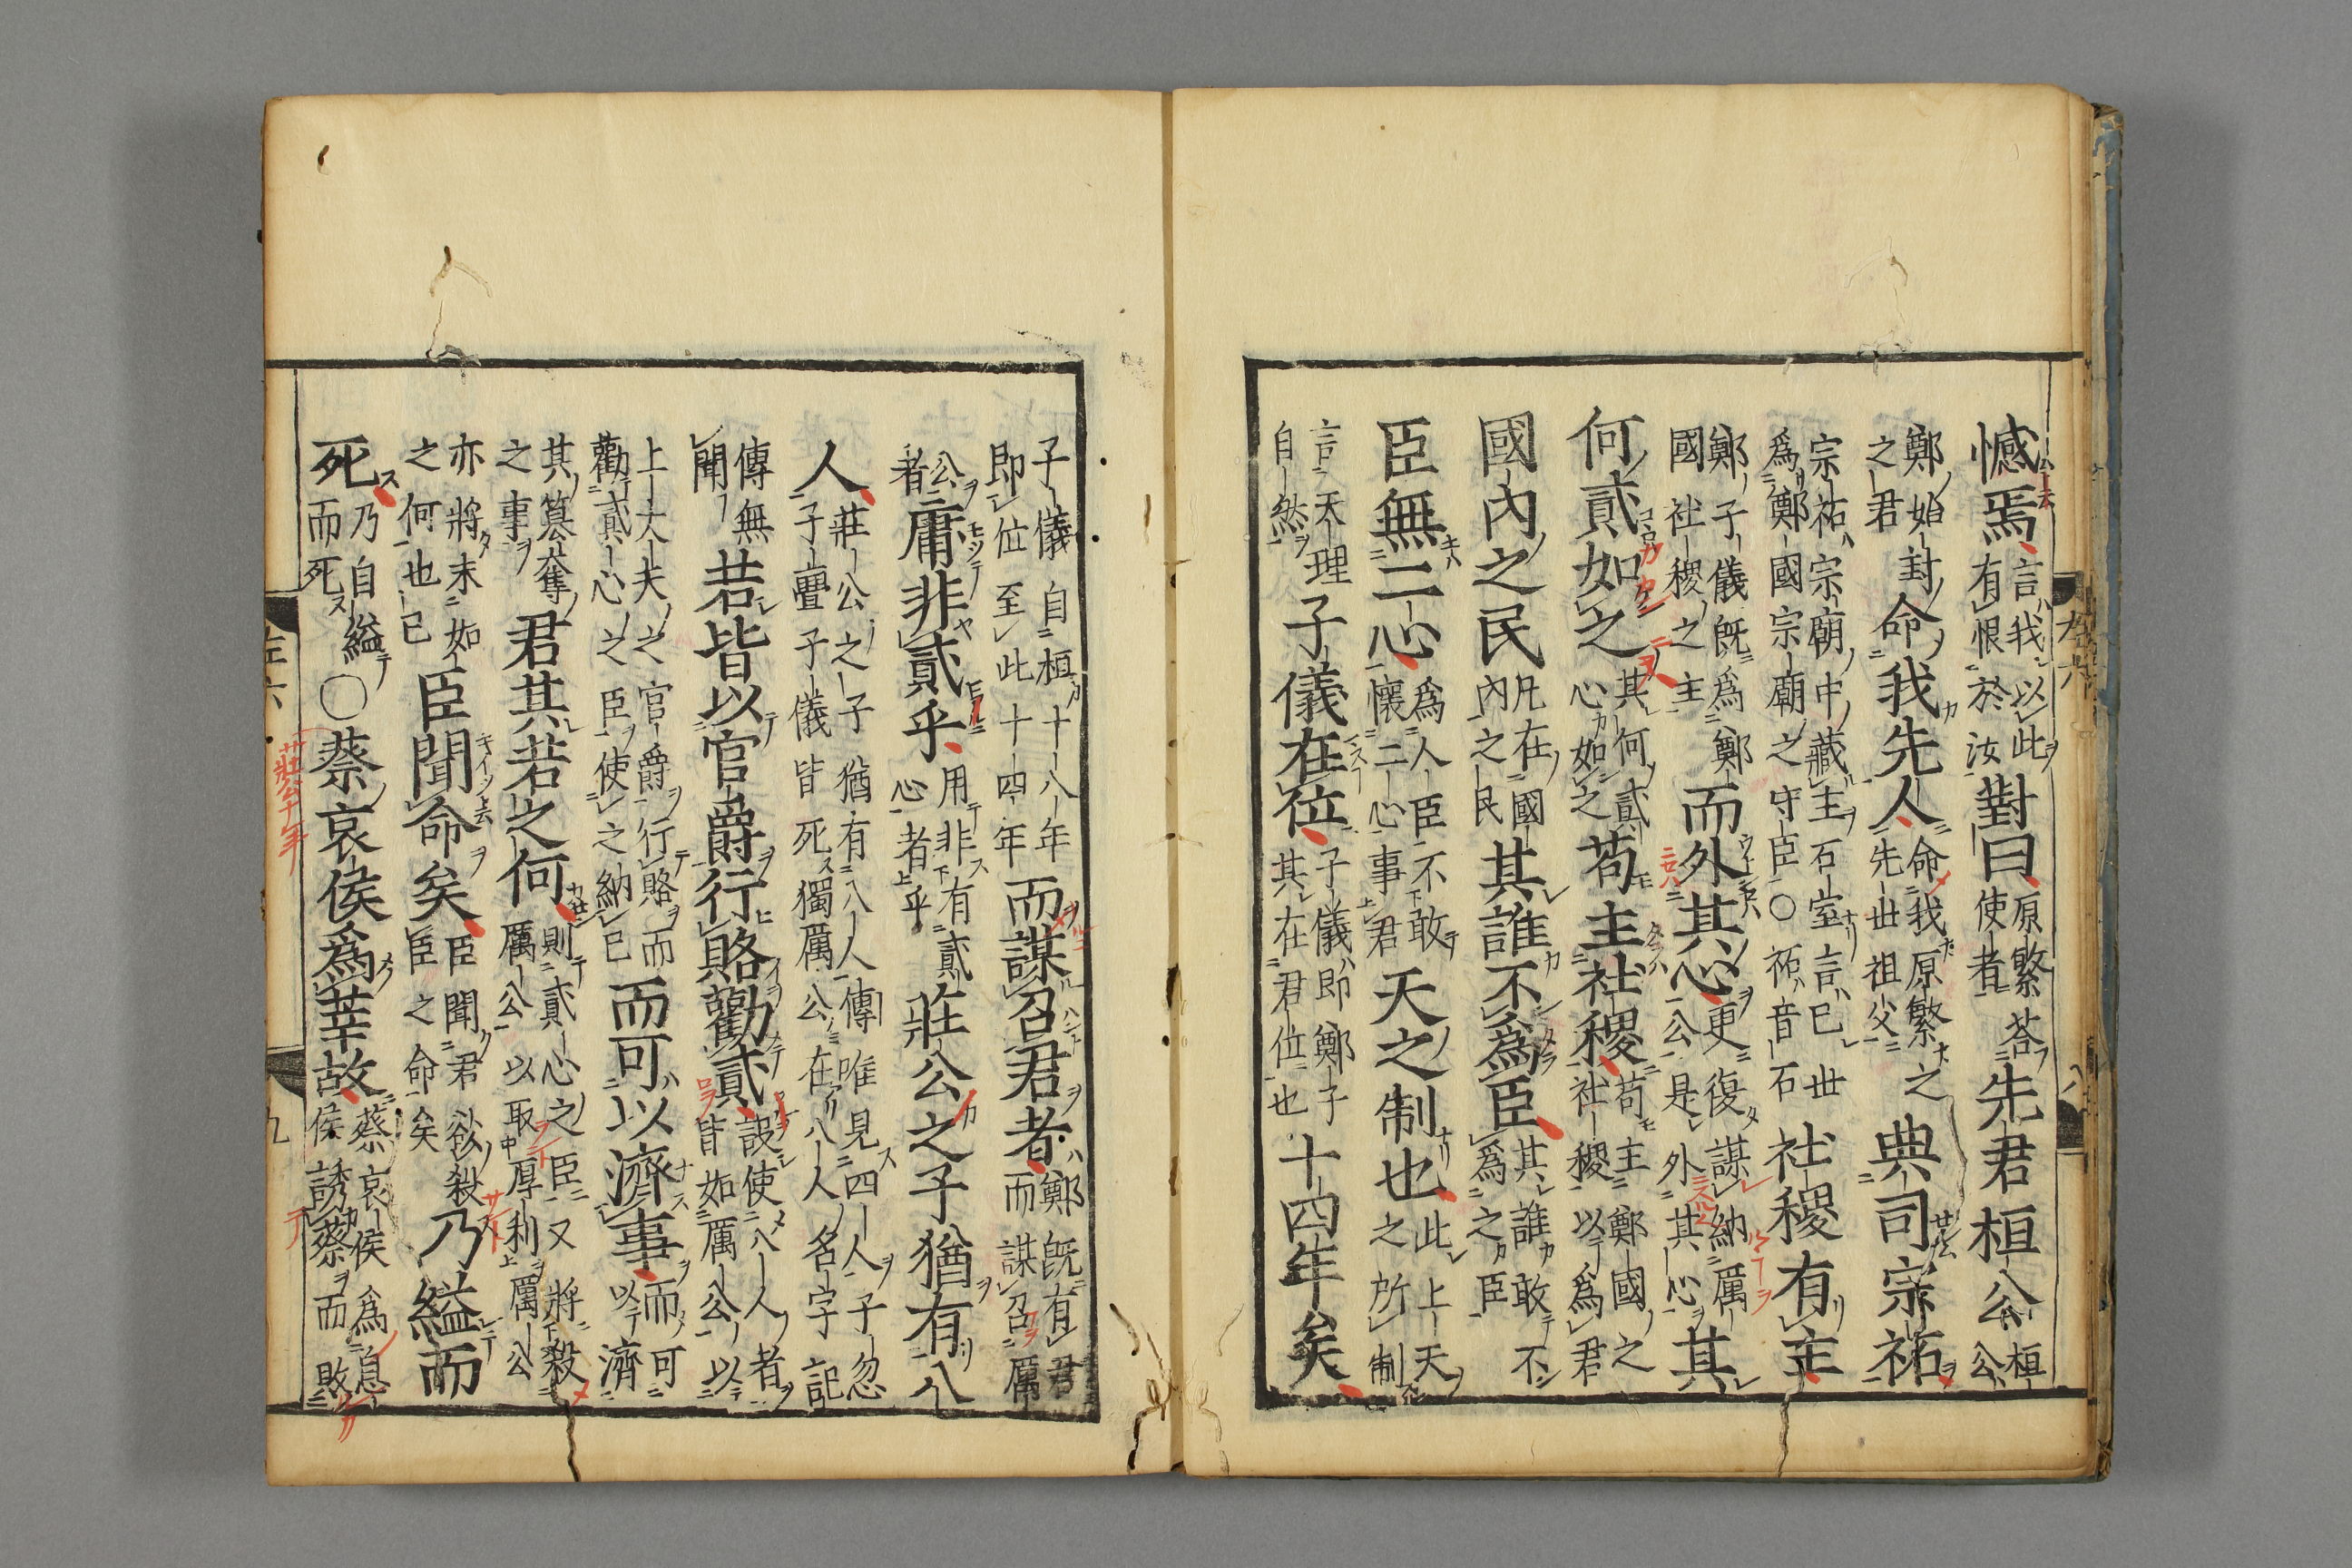 憾焉言我以此有恨於汝對曰原繁荅使者先君桓公桓公
鄭始封之君命我先人命我原繁之先世祖父典司宗祏
宗祏宗廟中藏主石室言已世爲鄭國宗廟之守臣○祏音石社稷有主
鄭子儀既爲鄭國社稷之主而外其心更復謀納厲公是外其心其
何貳如之其何貳心如之苟主社稷苟主鄭國之社稷以爲君
國內之民凡在國內之民其誰不爲臣其誰敢不爲之臣
臣無二心爲人臣不敢懷二心事君天之制也此上天之所制
言天理自然子儀在位子儀即鄭子其在君位也十四年矣
子儀自桓十八年即位至此十四年而謀召君者鄭既有君而謀召厲
公者庸非貳乎用非有貳心者乎莊公之子猶有八
人莊公之子猶有八人傳唯見四人子忽子亹子儀皆死獨厲公在八人名字記
傳無聞若皆以官爵行賂勸貳設使八人者皆如厲公以
上大夫之官爵行賂而勸貳心之臣使之納已而可以濟事而可以濟
其簒奪之事君其若之何則貳心之臣又將殺厲公以取厚利厲公
亦將末如之何也已臣聞命矣臣聞君欲殺臣之命矣乃縊而
死乃自縊而死○蔡哀侯爲莘故蔡哀侯爲息侯誘蔡而敗
左六 九